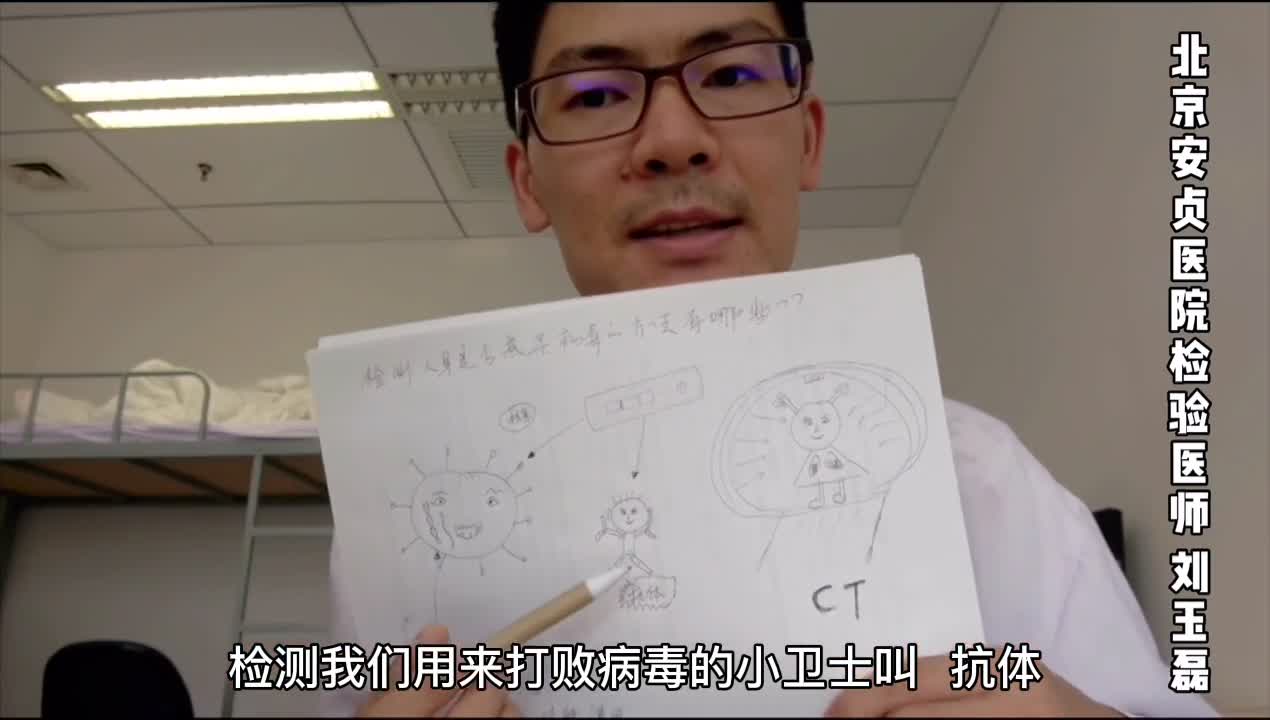 北京安贞医院检验医师 刘玉磊
检测人是否感染病毒的方法有哪些??
核酸
抗体
CT
检测我们用来打败病毒的小卫士叫 抗体